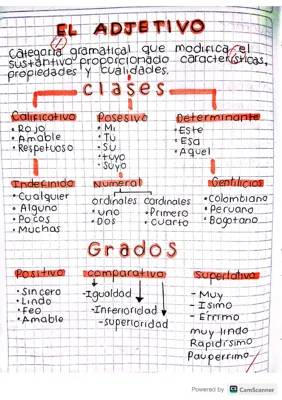 EL ADJETIVO
Categoría gramatical que modifica el
sustantivo proporcionado características,
propiedades y cualidades.
clases
Calificativo
• Rojo
• Amable
• Respetuoso
Posesivo
• Mi
• Tu
• Su
• tuyo
• Suyo
Determinante
• Este
• Esa
• Aquel
Indefinido
• Cualquier
• Alguno
• Pocos
• Muchas
Numeral
ordinales
• uno
• Dos
cardinales
• Primero
• Cuarto
Gentilicios
• Colombiano
• Peruana
• Bogotano
Grados
Positivo
• Sincero
• Lindo
• Feo
• Amable
comparativo
-Igualdad
-Inferioridad
-superioridad
Superlativo
- Muy
- Isimo
- Errimo
muy lindo
Rapidísimo
Pauperrimo
Powered by CS CamScanner